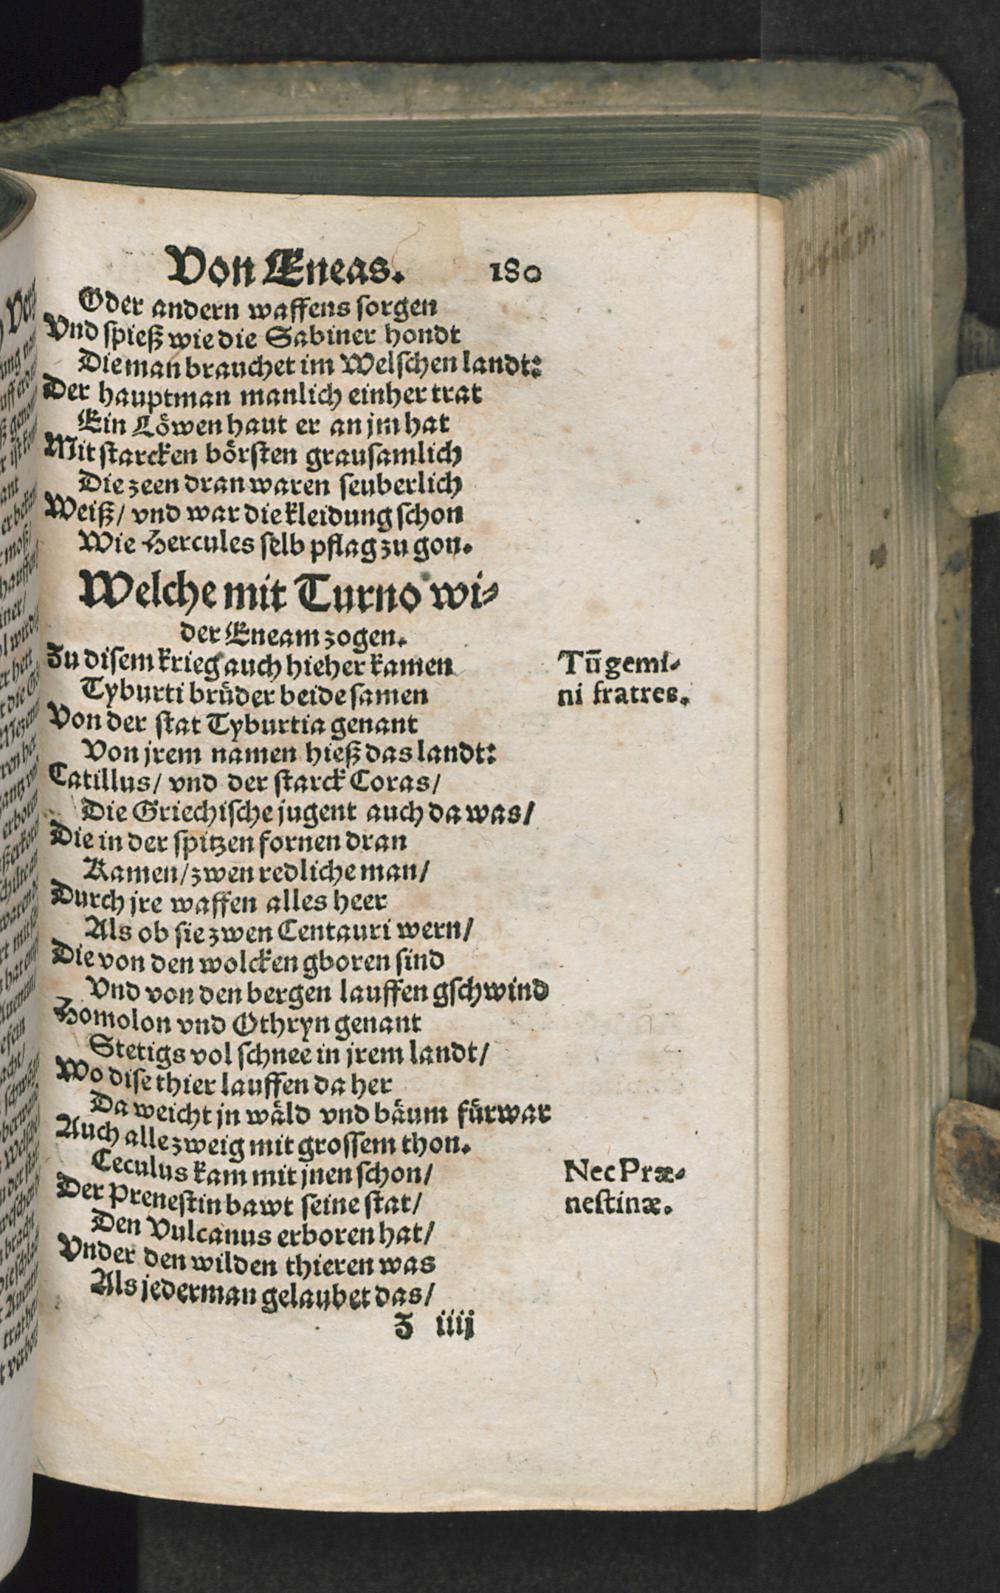 Von Eneas. 180
Oder andern waffens sorgen
Vnd spieß wie die Sabiner hondt
Die man brauchet im Welschen landt:
Der hauptman manlich einher trat
Ein Löwen haut er an jm hat
Mit starcken börsten grausamlich
Die zeen dran waren seuberlich
Weiß/ vnd war die kleidung schon
Wie Hercules selb pflag zu gon.
Welche mit Turno wi-
der Eneam zogen.
Zu disem krieg auch hieher kamen
Tū gemi-
Tyburti brüder beide samen
ni fratres.
Von der stat Tyburtia genant
Von jrem namen hieß das landt:
Catillus/ vnd der starck Coras/
Die Griechische jugent auch da was/
Die in der spitzen fornen dran
Kamen/ zwen redliche man/
Durch jre waffen alles heer
Als ob sie zwen Centauri wern/
Die von den wolcken gboren sind
Vnd von den bergen lauffen gschwind
Homolon vnd Othryn genant
Stetigs vol schnee in jrem landt/
Wo dise thier lauffen da her
Da weicht jn wäld vnd bäum fürwar
Auch alle zweig mit grossem thon.
Ceculus kam mit jnen schon/
Nec Præ-
Der Prenestin bawt seine stat/
nestinæ.
Den Vulcanus erboren hat/
Vnder den wilden thieren was
Als jederman gelaubet das/
Z iiij